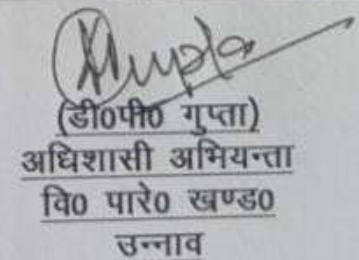 (डी0पी0 गुप्ता)
अधिशासी अभियन्ता
वि0 पारे0 खण्ड0
उन्नाव